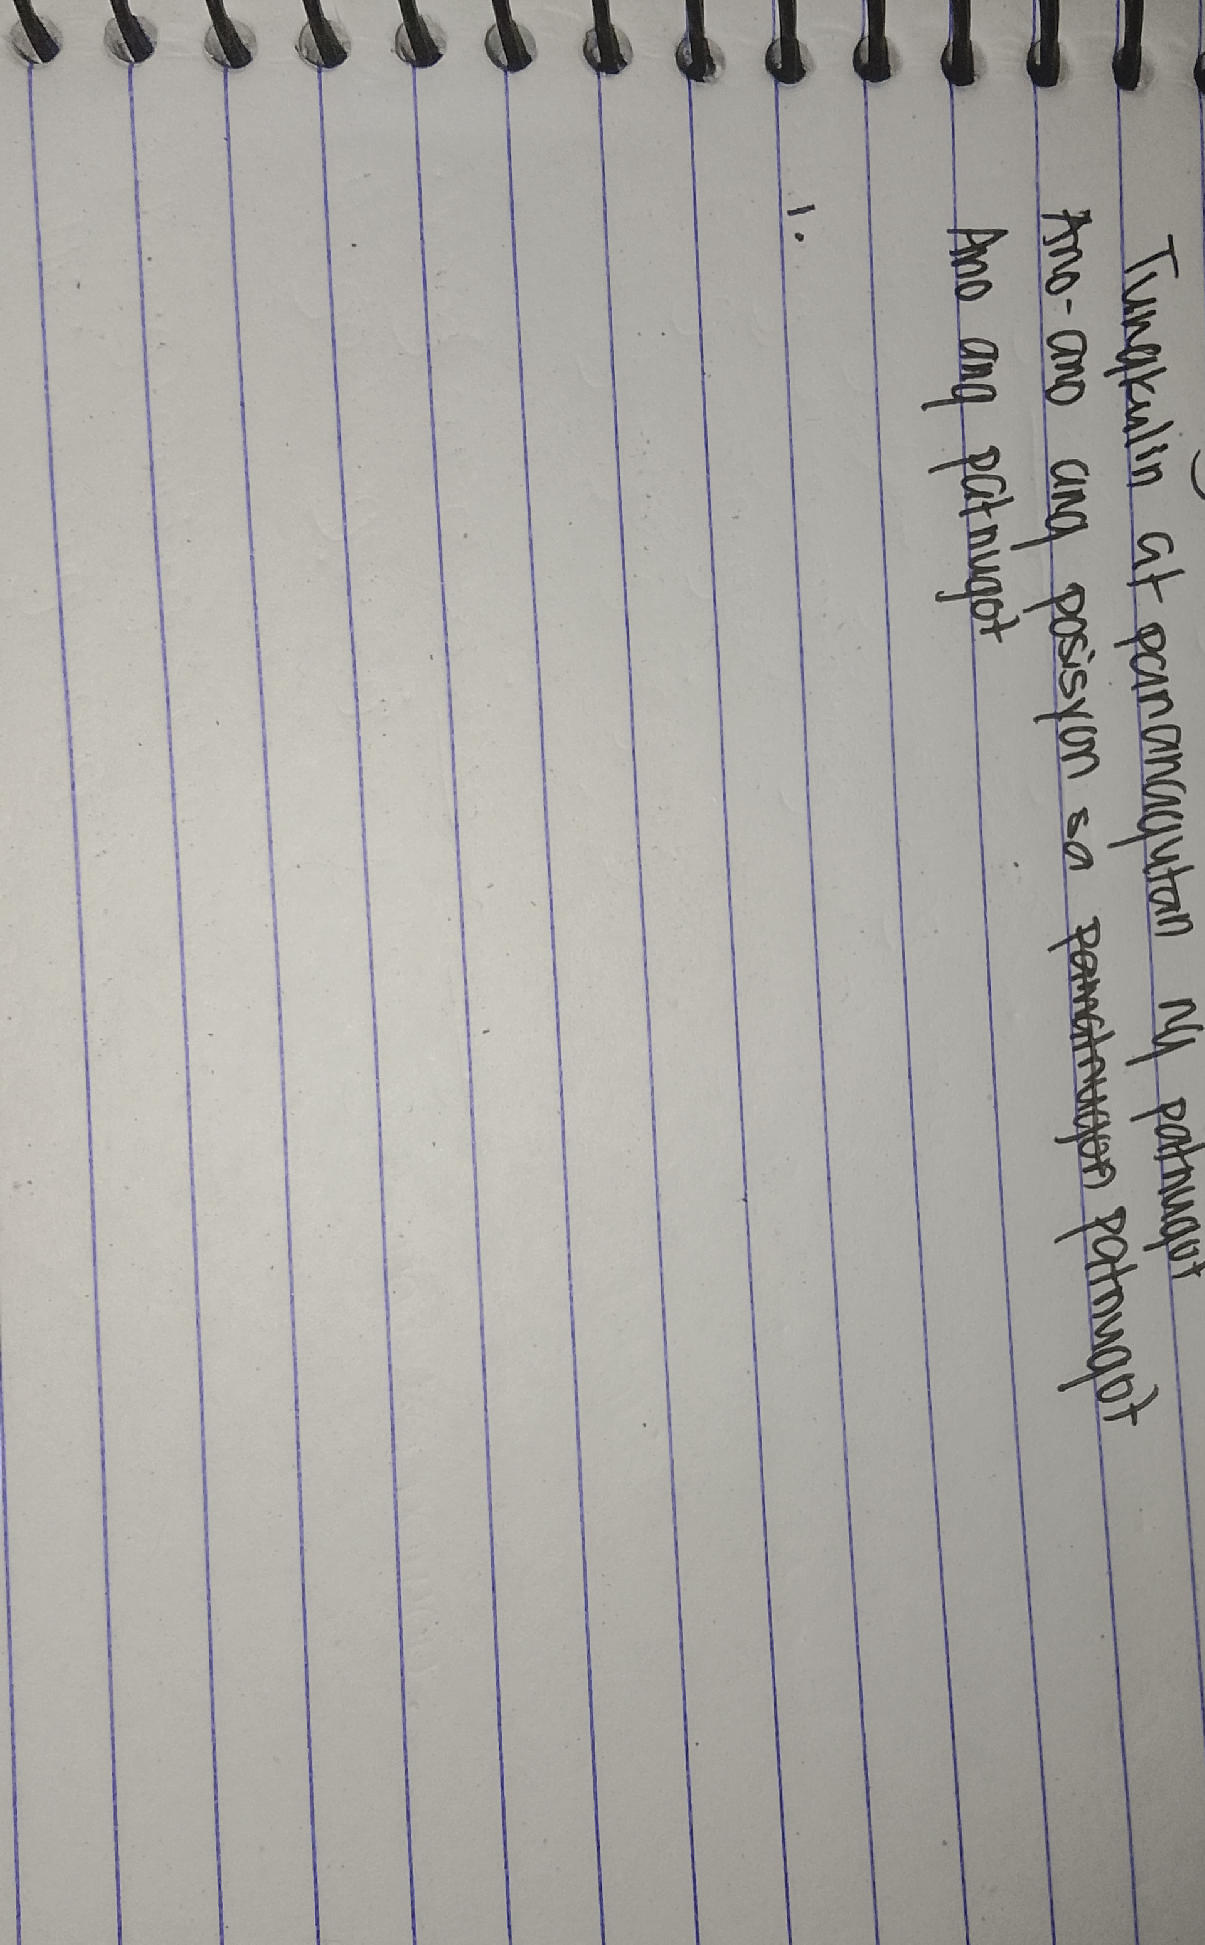 Tungkulin at pananagutan ng patnugot
Ano-ano ang posisyon sa patnugot
Ano ang patnugot
1.